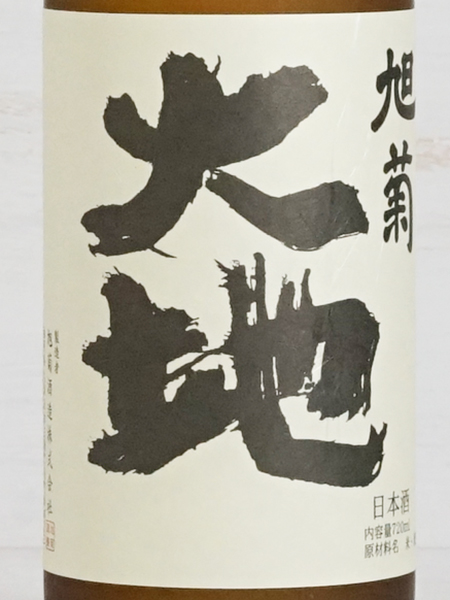 旭菊
大地
日本酒
内容量720ml
原材料名 米・
製造者
旭菊酒造株式会社